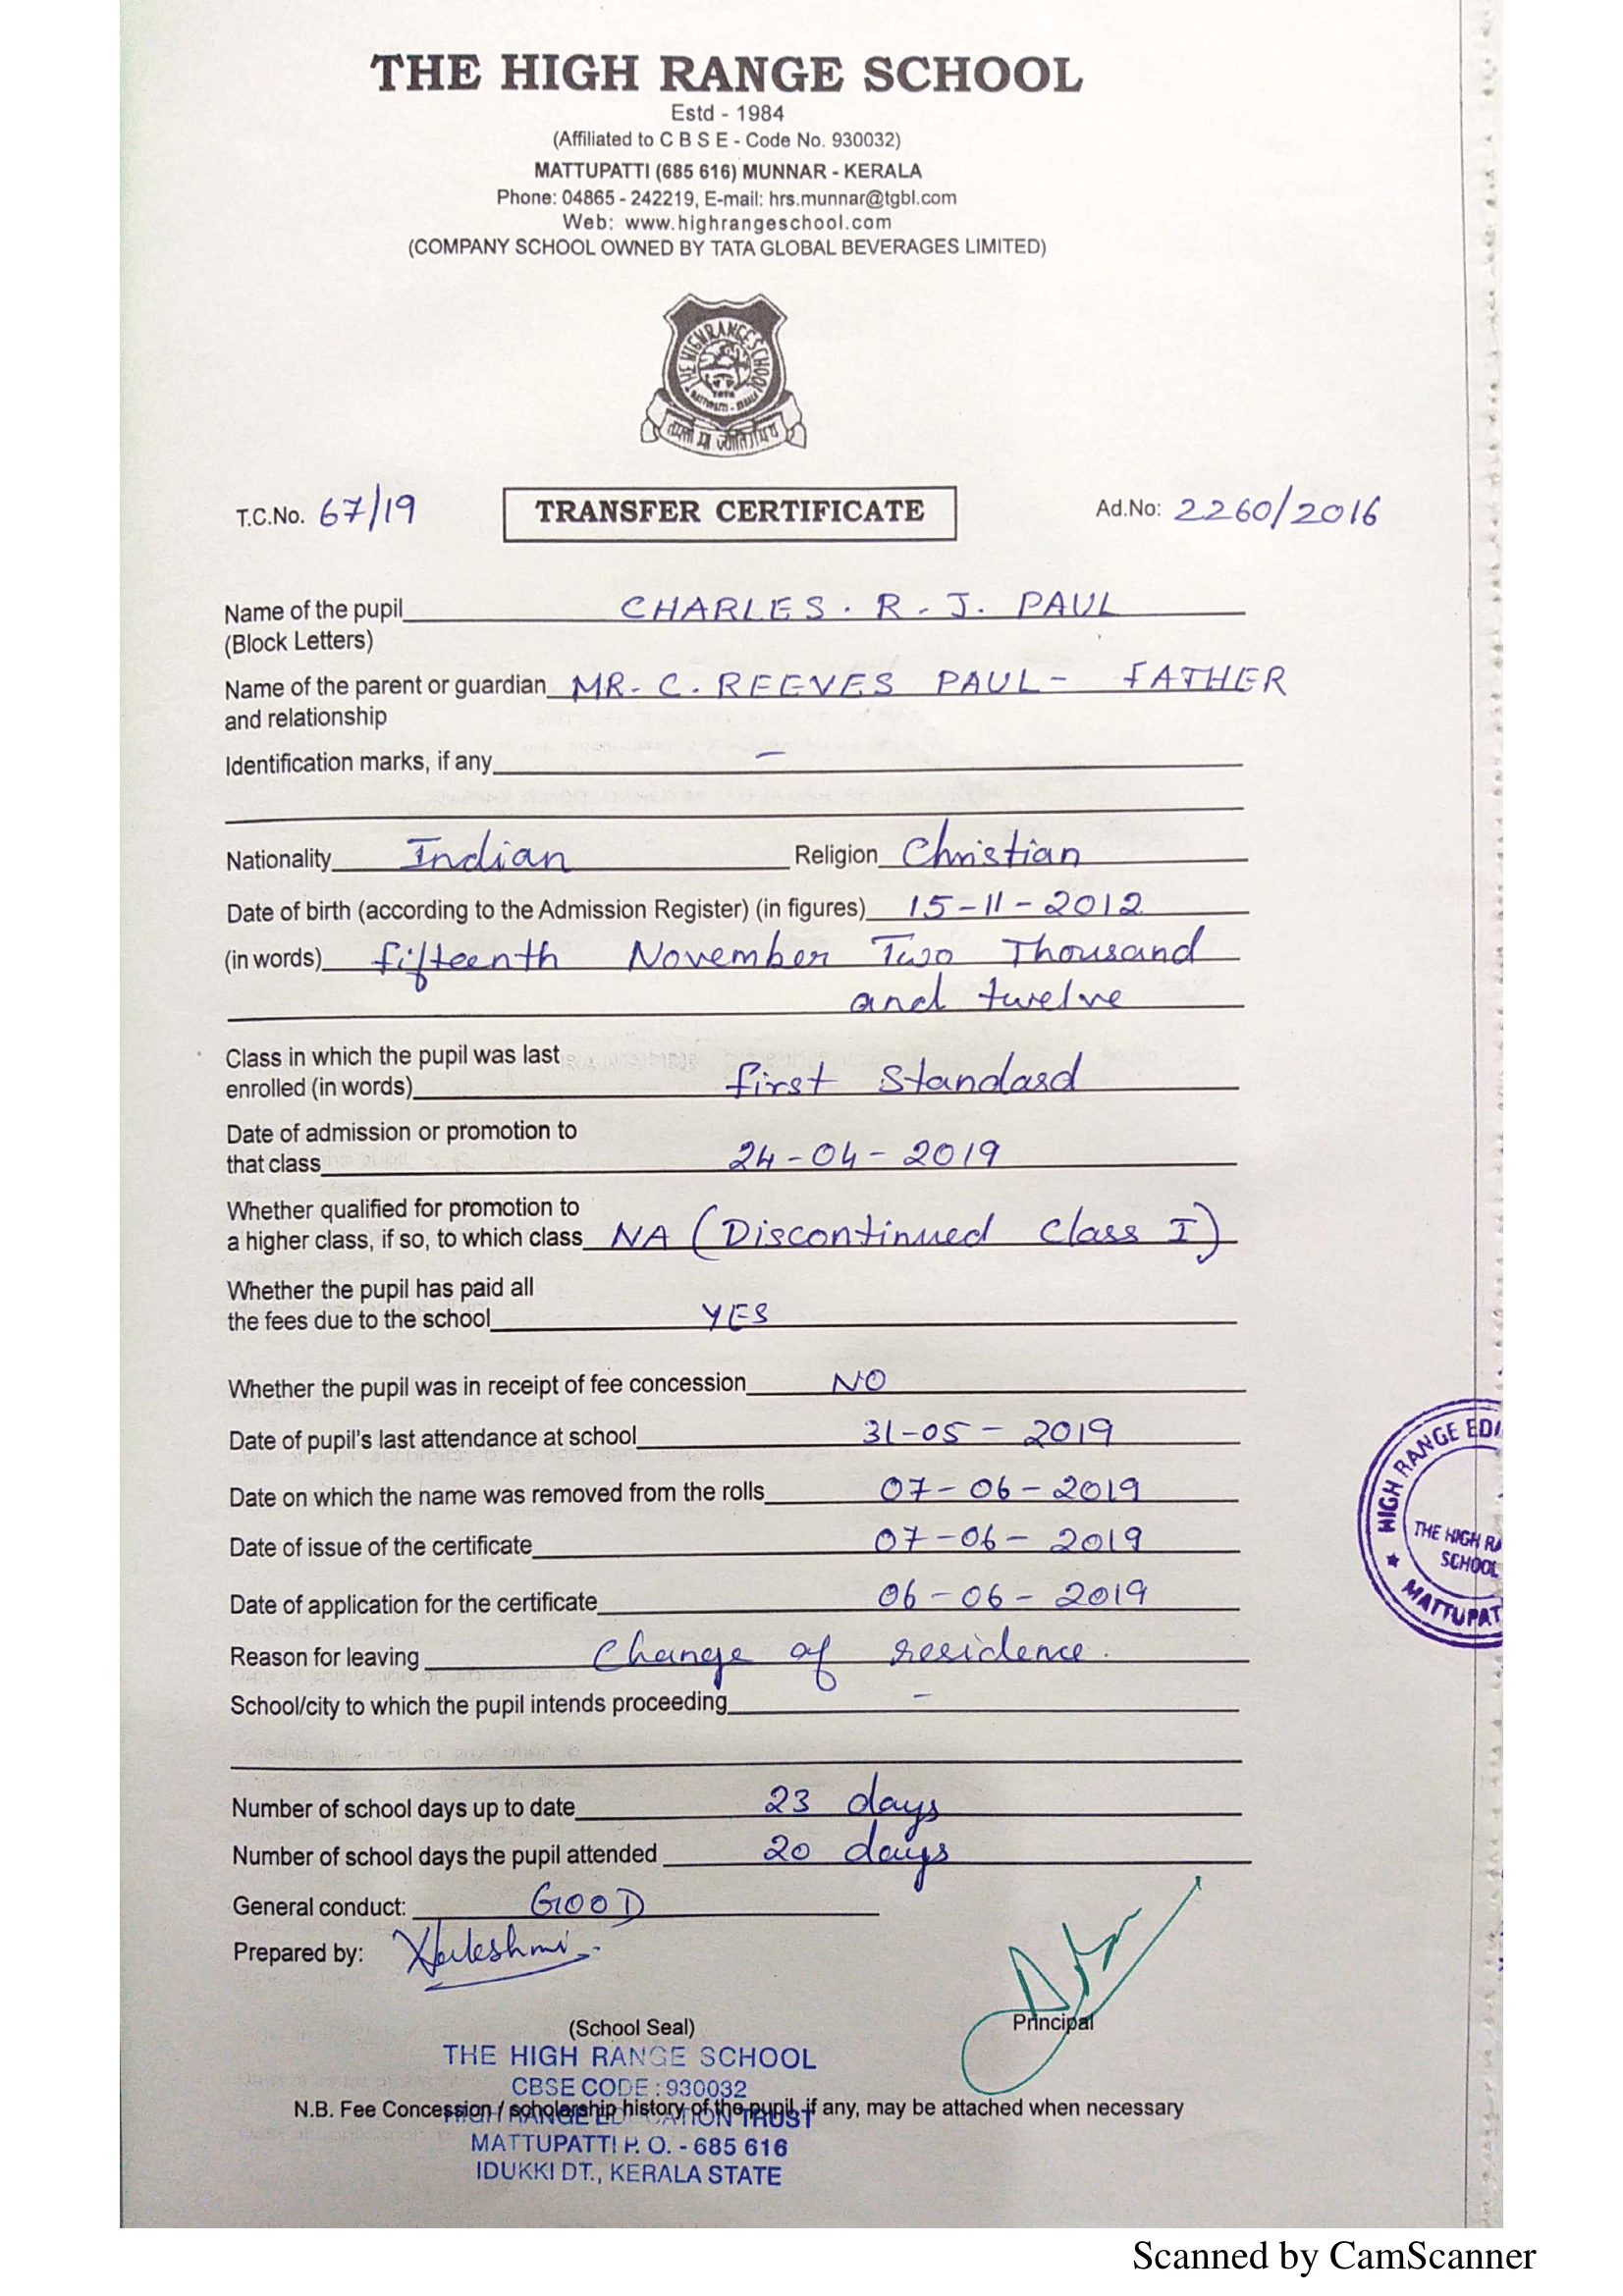 THE HIGH RANGE SCHOOL
Estd - 1984
(Affiliated to C B S E - Code No. 930032)
MATTUPATTI (685 616) MUNNAR - KERALA
Phone: 04865 - 242219, E-mail: hrs.munnar@tgbl.com
Web: www.highrangeschool.com
(COMPANY SCHOOL OWNED BY TATA GLOBAL BEVERAGES LIMITED)
THE HIGH RANGE SCHOOL
T.C.No. 67/19 TRANSFER CERTIFICATE Ad.No: 2260/2016
Name of the pupil CHARLES. R. J. PAUL
(Block Letters)
Name of the parent or guardian MR. C. REEVES PAUL - FATHER
and relationship
Identification marks, if any –
Nationality Indian Religion Christian
Date of birth (according to the Admission Register) (in figures) 15-11-2012
(in words) fifteenth November Two Thousand
and twelve
Class in which the pupil was last
enrolled (in words) first Standard
Date of admission or promotion to
that class 24-04-2019
Whether qualified for promotion to
a higher class, if so, to which class NA (Discontinued Class I)
Whether the pupil has paid all
the fees due to the school YES
Whether the pupil was in receipt of fee concession NO
Date of pupil's last attendance at school 31-05-2019
Date on which the name was removed from the rolls 07-06-2019
Date of issue of the certificate 07-06-2019
Date of application for the certificate 06-06-2019
Reason for leaving Change of residence.
School/city to which the pupil intends proceeding –
Number of school days up to date 23 days
Number of school days the pupil attended 20 days
General conduct: GOOD
Prepared by:
HIGH RANGE EDU
THE HIGH RA
SCHOOL
MATTUPAT
Principal
(School Seal)
THE HIGH RANGE SCHOOL
CBSE CODE : 930032
N.B. Fee Concession / scholership history of the pupil, if any, may be attached when necessary
HIGH RANGE EDUCATION TRUST
MATTUPATTI P. O. - 685 616
IDUKKI DT., KERALA STATE
Scanned by CamScanner